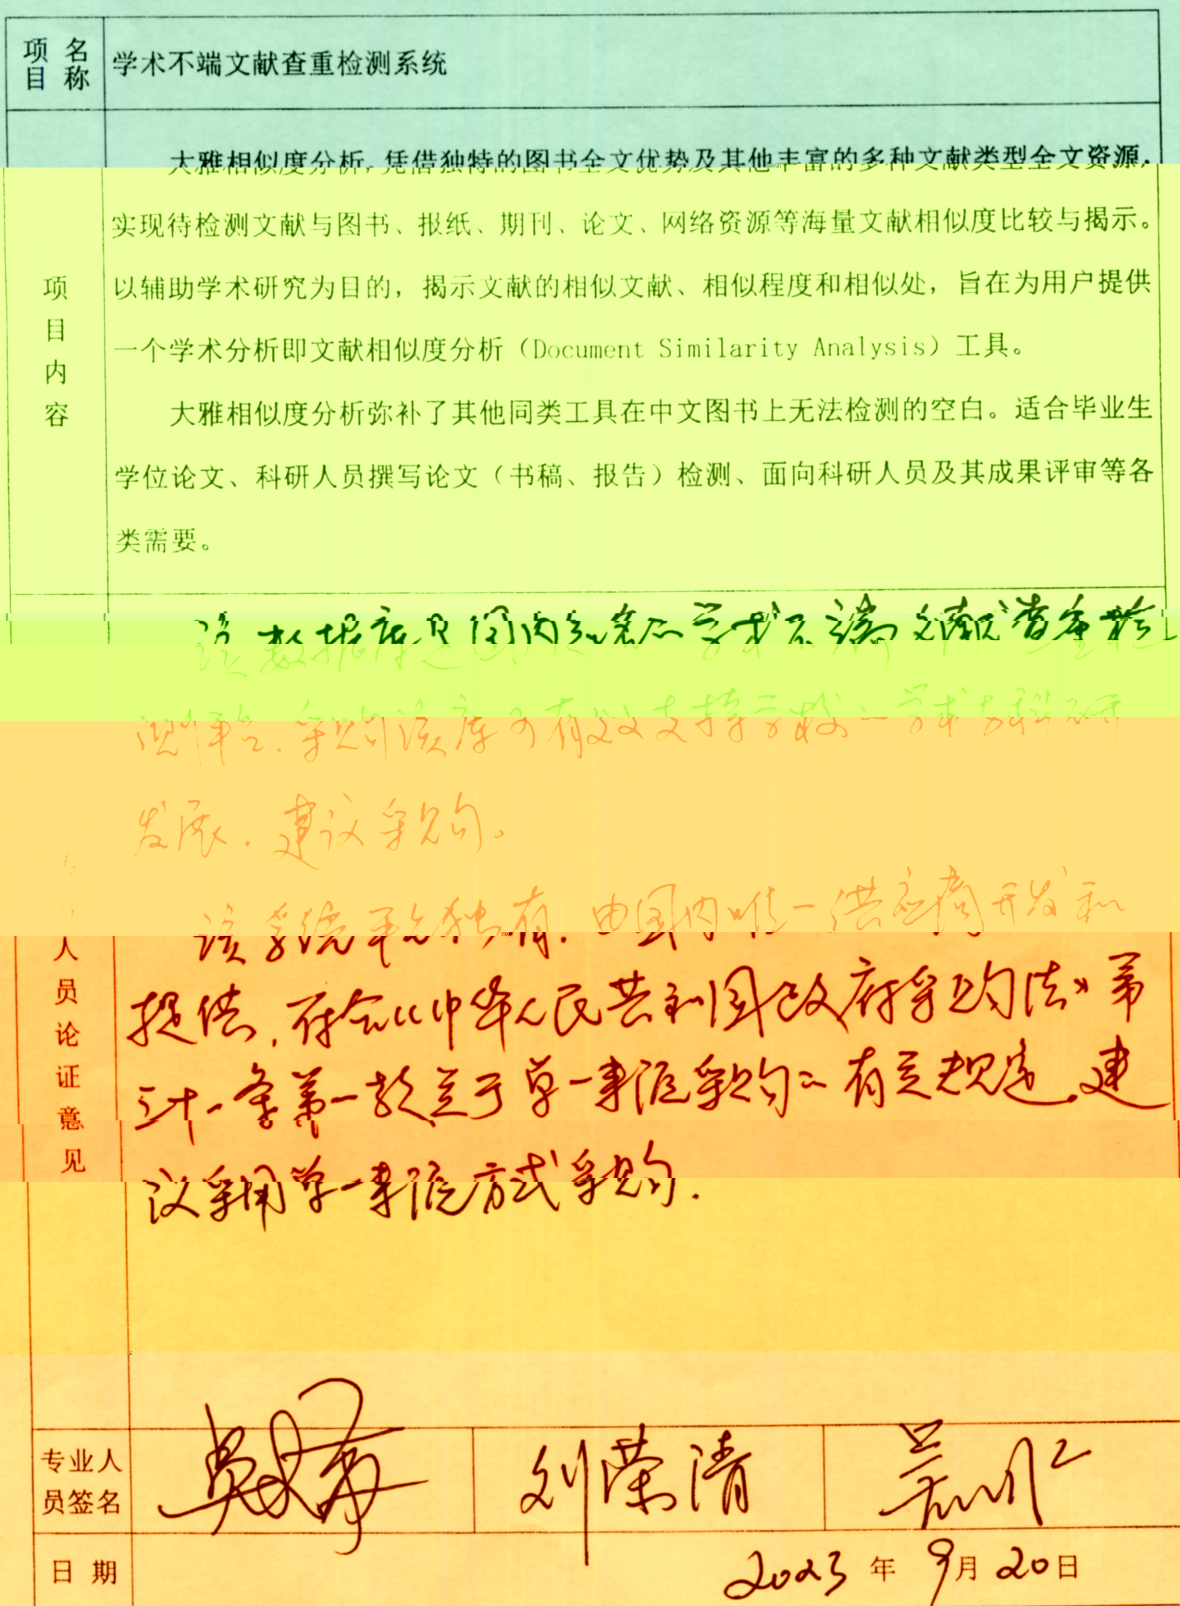 项目名称
学术不端文献查重检测系统
大雅相似度分析，凭借独特的图书全文优势及其他丰富的多种文献类型全文资源，
实现待检测文献与图书、报纸、期刊、论文、网络资源等海量文献相似度比较与揭示。
以辅助学术研究为目的，揭示文献的相似文献、相似程度和相似处，旨在为用户提供
一个学术分析即文献相似度分析（Document Similarity Analysis）工具。
大雅相似度分析弥补了其他同类工具在中文图书上无法检测的空白。适合毕业生
学位论文、科研人员撰写论文（书稿、报告）检测、面向科研人员及其成果评审等各
类需要。
项目内容
该数据库是国内知名的学术不端文献查重检
测平台，采购该库可有效支持学校的学术与科研
发展，建议采购。
该系统平台独有，由国内唯一供应商开发和
提供，符合《中华人民共和国政府采购法》第
三十一条第一款关于单一来源采购的有关规定，建
议采用单一来源方式采购。
人员论证意见
专业人员签名
刘荣清
日期
2023年9月20日